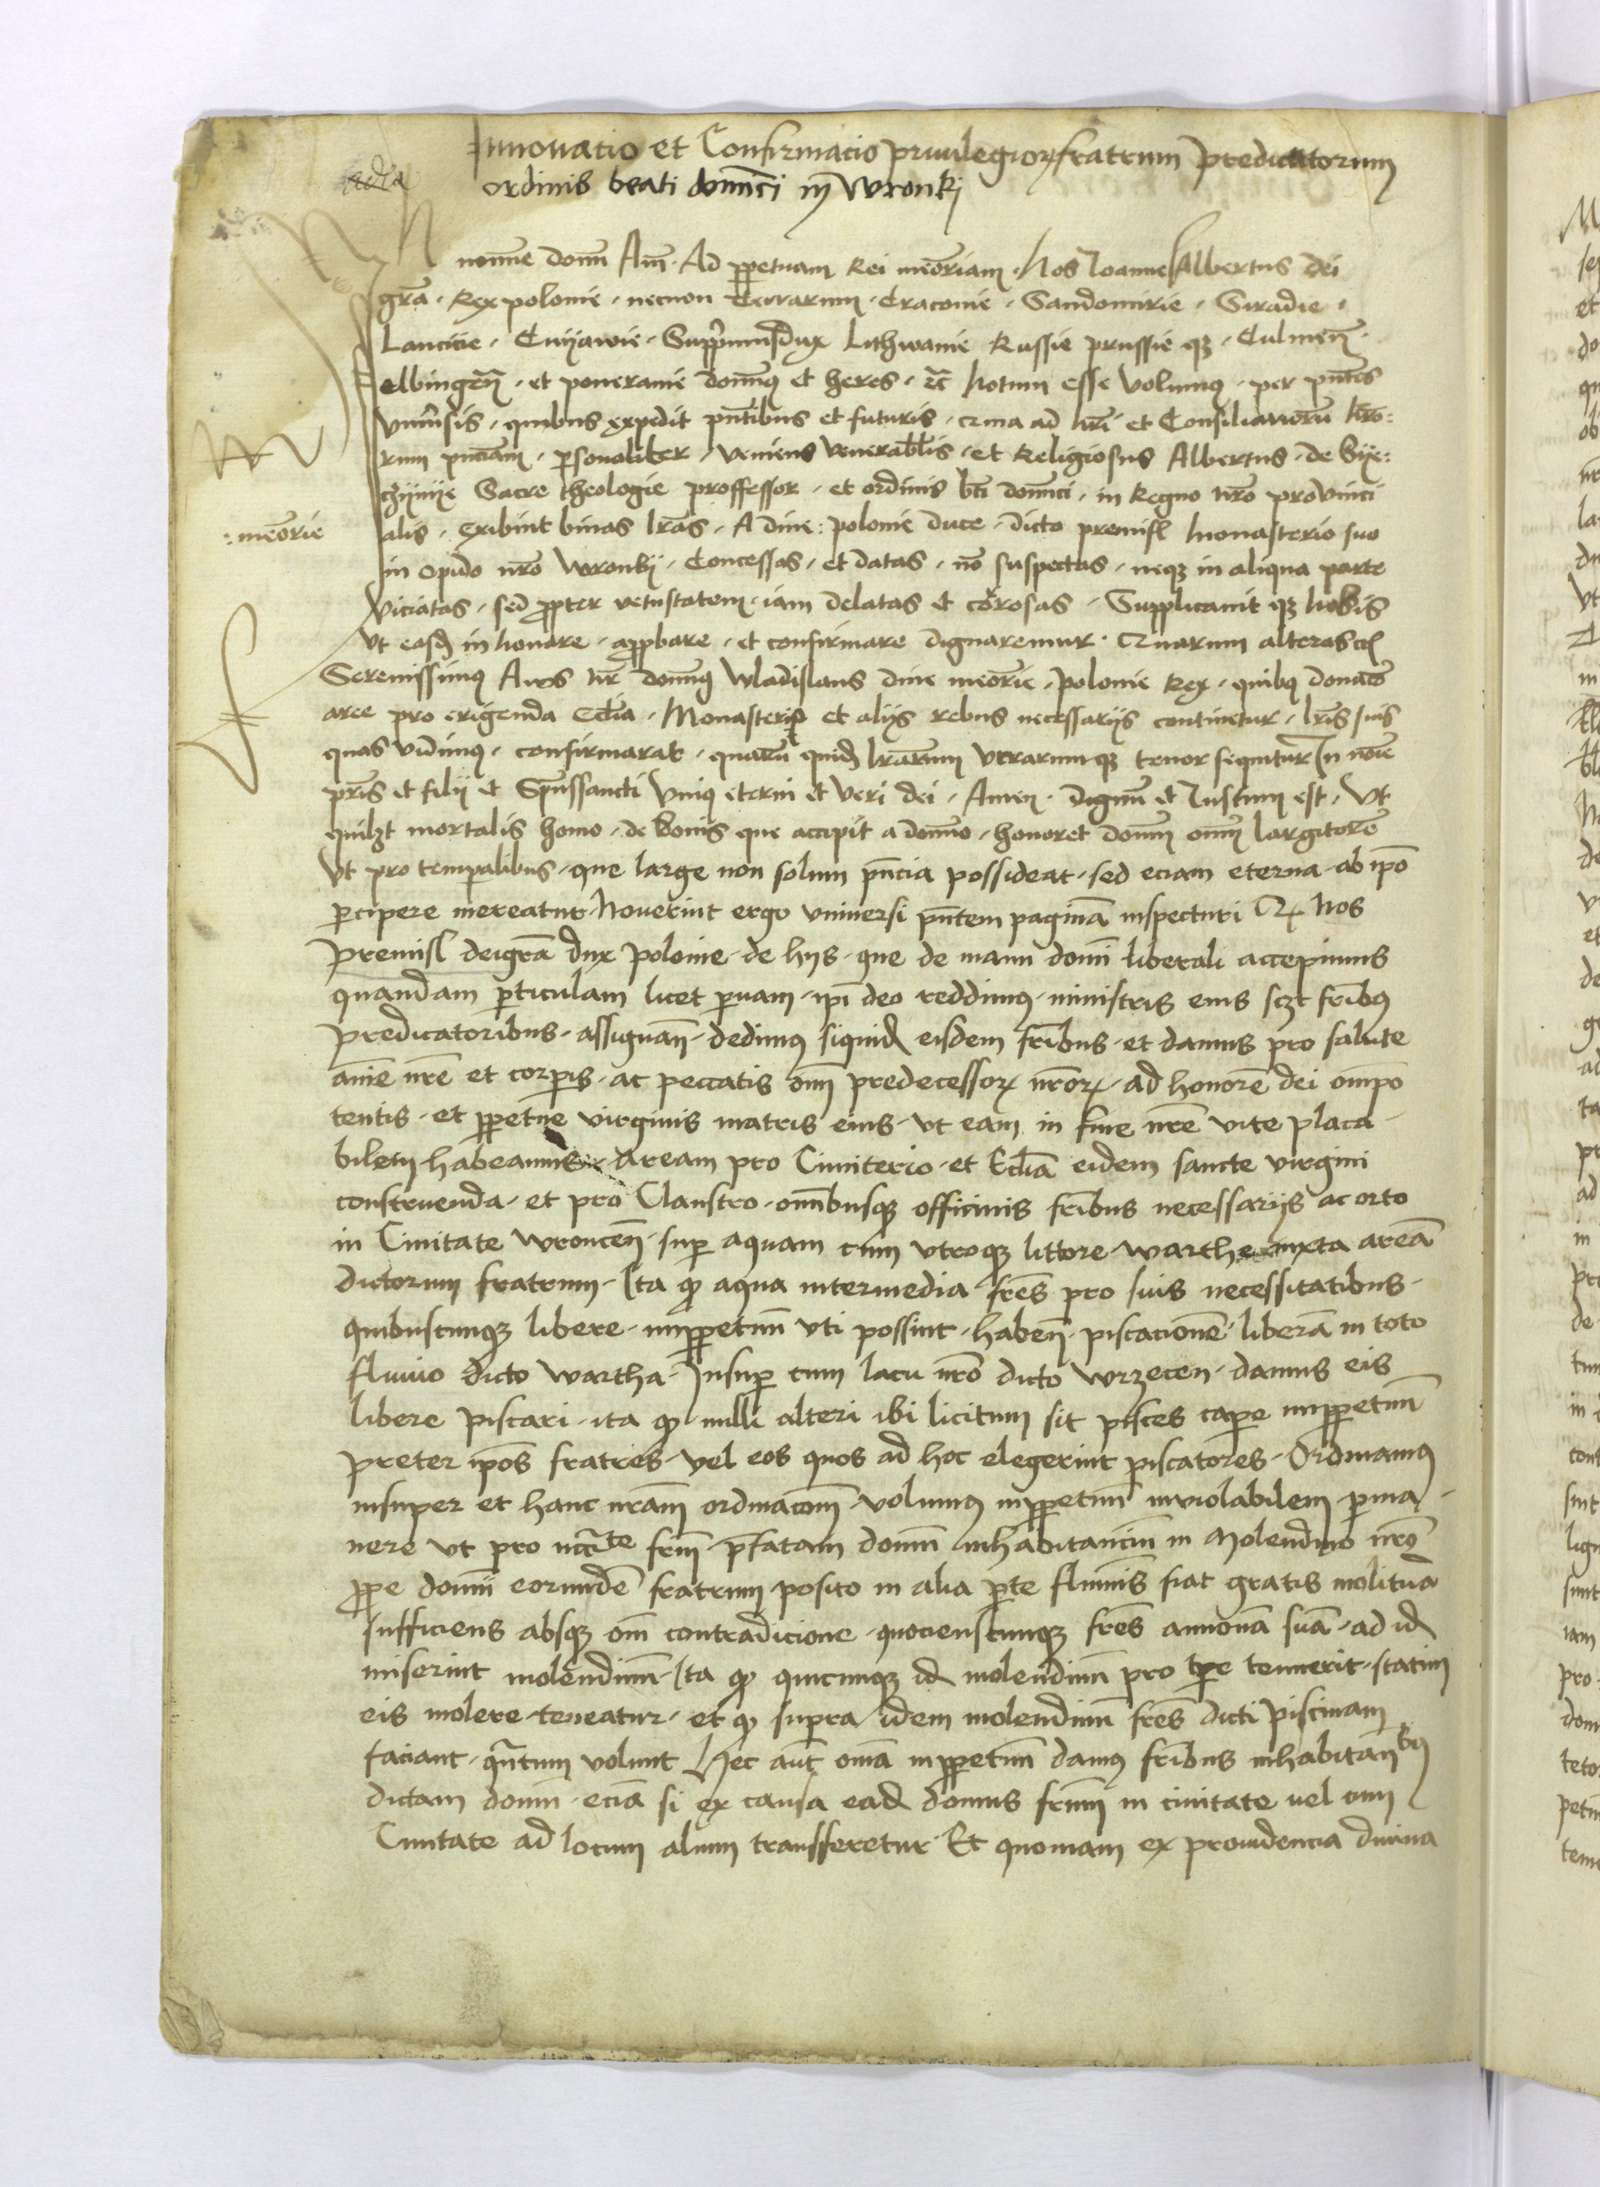 Innovatio et Confirmacio privilegiorꝝ fratrum predicatorum
ordinis beati dom̄ci in Wronkj
In nomine domī Am̄ · Ad ꝑpetuam Rei meōriam · Nos Joannes Albertus dei
gr̄a · Rex polonie · necnon Terrarum · Cracovie · Sandomirie · Siradie ·
Lancicie · Cuÿavie · Supremusdux Lithwanie Russie prussie qꝫ · Culmeñ ·
elbingeñ · et pomeranie dominꝰ et heres · ꝛc̄ Notum esse volumꝰ · per pn̄tes
vniv̄sis · quibus expedit pn̄tibus et futuris · qma ad nr̄i et Consiliarioru nr̄o:
rum pn̄ciam · ꝑsonaliter · veniens venerabl̄is · et Religiosus Albertus · de Sye:
cȝÿnÿe Sacre theologie proffessor · et ordinis bt̄i dom̄ci · in Regno nr̄o provinci
: meōrie
alis · exibint binas lr̄as · A dine : polonie duce · dicto premisl Monasterio suo
in opido nr̄o Wronkÿ · Concessas · et datas · nō suspectas · neqꝫ in aliqua parte
Viciatas · sed ꝓpter vetustatem · iam delatas et corosas · Supplicavit qꝫ Nobis
Vt easd̄ in novare · aprobare · et confirmare dignaremur · Quarum alteras
Serenissimꝰ Avus nr̄ dominꝰ Wladislaus dive meōrie · polonie Rex · quibꝰ donacō
aree pro erigenda Eccl̄ia · Monasterio et aliȷs rebus necessariȷs continetur · lr̄is suis
quas vidimꝰ · confirmarat · quarū quid̄ lr̄arum vtrarumqꝫ tenor sequitur In noīe
pr̄is et filii et Spūssancti Vniꝰ eterni et veri dei · Amen · dignū et Justum est · Vt
quilꝫt mortalis homo · de bonis que accipit a domino · honoret domin̄ omniū largitorē
Vt pro temꝑalibus · que large non solum pn̄cia possideat · sed eciam eterna · ab ipō
ꝑcipere mereatur · Noverint ergo universi pn̄tem paginā inspecturi Qꝫ Nos
Premisl deigr̄a dux Polonie · de hȷs · que de manu domī liberali accepimus
quandam ꝑticulam licet ꝑvam · ipī deo reddimꝰ · ministris eius scꝫt fribꝰ
predicatoribus · assignan̄ · dedimꝰ siquid̄ eisdem fr̄ibus · et damus pro salute
anīe nrē et corꝑis · ac peccatis om̄ predecessorꝝ nr̄orꝝ · ad honorē dei omīpo
tentis · et ꝑpetue virginis matris eius · vt eam in fine nrē vite placa ·
bilem habeamus · Aream pro Cimiterio · et Eccl̄ia eidem sancte virgini
construenda · et pro Claustro · omn̄ibusqꝫ officinis fr̄ibus necessariȷs ac orto
in Civitate wronceñ · suꝑ aquam cum vtroqꝫ littore warthe iuxta areā
dictorum fratrum · Ita qꝫ aqua intermedia fr̄es pro suis necessitatibus ·
quibuscunqꝫ libere · inꝑpetuū vti possint · habeñ · piscacionē · liberā in toto
fluuio dicto wartha · Insuꝑ cum lacu nr̄o dicto wrzecen · damus eis
libere piscari · ita qꝫ nulli alteri ibi licitum sit pisces caꝑe inꝑpetuū
preter ipōs fratres · vel eos quos ad hoc elegerint piscatores · Ordinamꝰ
insuper et hanc nr̄am ordinacōm · volumꝰ inꝑpetuū inviolabilem ꝑma ·
nere vt pro nccīte frm̄ · pr̄fatam domū inhabitanciū in Molendino nr̄o
ꝓpe domū eorundē fratrum posito in alia ꝑte fluminis fiat gratis molituꝰ
sufficiens absqꝫ om̄ contradicione · quocienscunqꝫ fr̄es annonā suā · ad id̄
miserint molendinū · Ita qꝫ quicunqꝫ id̄ molendinū pro tꝑe tenuerit · statim
eis molere teneatur · et qꝫ supra idem molendinū fr̄es dicti piscinam
faciant · quantum volunt Hec aūt omīa inꝑpetuū damꝰ fr̄ibus inhabitan̄bꝰ
dictam domū · eciā si ex causa ead̄ domus frm̄ in civitate vel cum
Civitate ad locum alium transfferetur · Et quoniam ex providencia divina